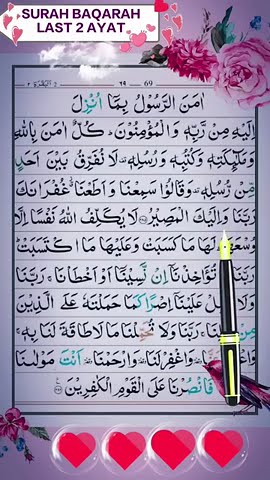 SURAH BAQARAH
LAST 2 AYAT
البقرة ٢ ٦٩ 69
اٰمَنَ الرَّسُوْلُ بِمَاۤ اُنْزِلَ
اِلَيْهِ مِنْ رَّبِّهٖ وَالْمُؤْمِنُوْنَ ؕ كُلٌّ اٰمَنَ بِاللّٰهِ
وَمَلٰٓئِكَتِهٖ وَكُتُبِهٖ وَرُسُلِهٖ ۟ لَا نُفَرِّقُ بَيْنَ اَحَدٍ
مِّنْ رُّسُلِهٖ ۟ وَقَالُوْا سَمِعْنَا وَاَطَعْنَا ٭۫ غُفْرَانَكَ
رَبَّنَا وَاِلَيْكَ الْمَصِيْرُ ﴿۲۸۵﴾ لَا يُكَلِّفُ اللّٰهُ نَفْسًا اِلَّا
وُسْعَهَا ؕ لَهَا مَا كَسَبَتْ وَعَلَيْهَا مَا اكْتَسَبَتْ ؕ
رَبَّنَا لَا تُؤَاخِذْنَاۤ اِنْ نَّسِيْنَاۤ اَوْ اَخْطَاْنَا ۚ رَبَّنَا
وَلَا تَحْمِلْ عَلَيْنَاۤ اِصْرًا كَمَا حَمَلْتَهٗ عَلَى الَّذِيْنَ
مِنْ قَبْلِنَا ۚ رَبَّنَا وَلَا تُحَمِّلْنَا مَا لَا طَاقَةَ لَنَا بِهٖ ۚ
وَاعْفُ عَنَّا ۥ وَاغْفِرْ لَنَا ۥ وَارْحَمْنَا ۥ اَنْتَ مَوْلٰىنَا
فَانْصُرْنَا عَلَى الْقَوْمِ الْكٰفِرِيْنَ ﴿۲۸۶﴾